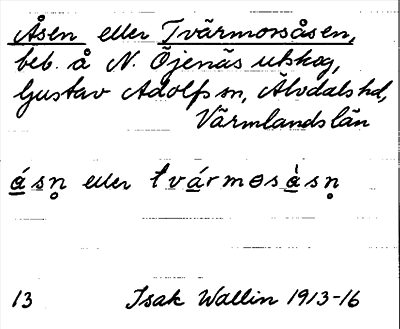 Åsen eller Tvärmorsåsen,
beb. å N. Öjenäs utskog,
Gustav Adolfs sn, Älvdals hd,
Värmlands län
á̲sn̥ eller tvá̲rmɵsà̲sn̥
13 Isak Wallin 1913-16